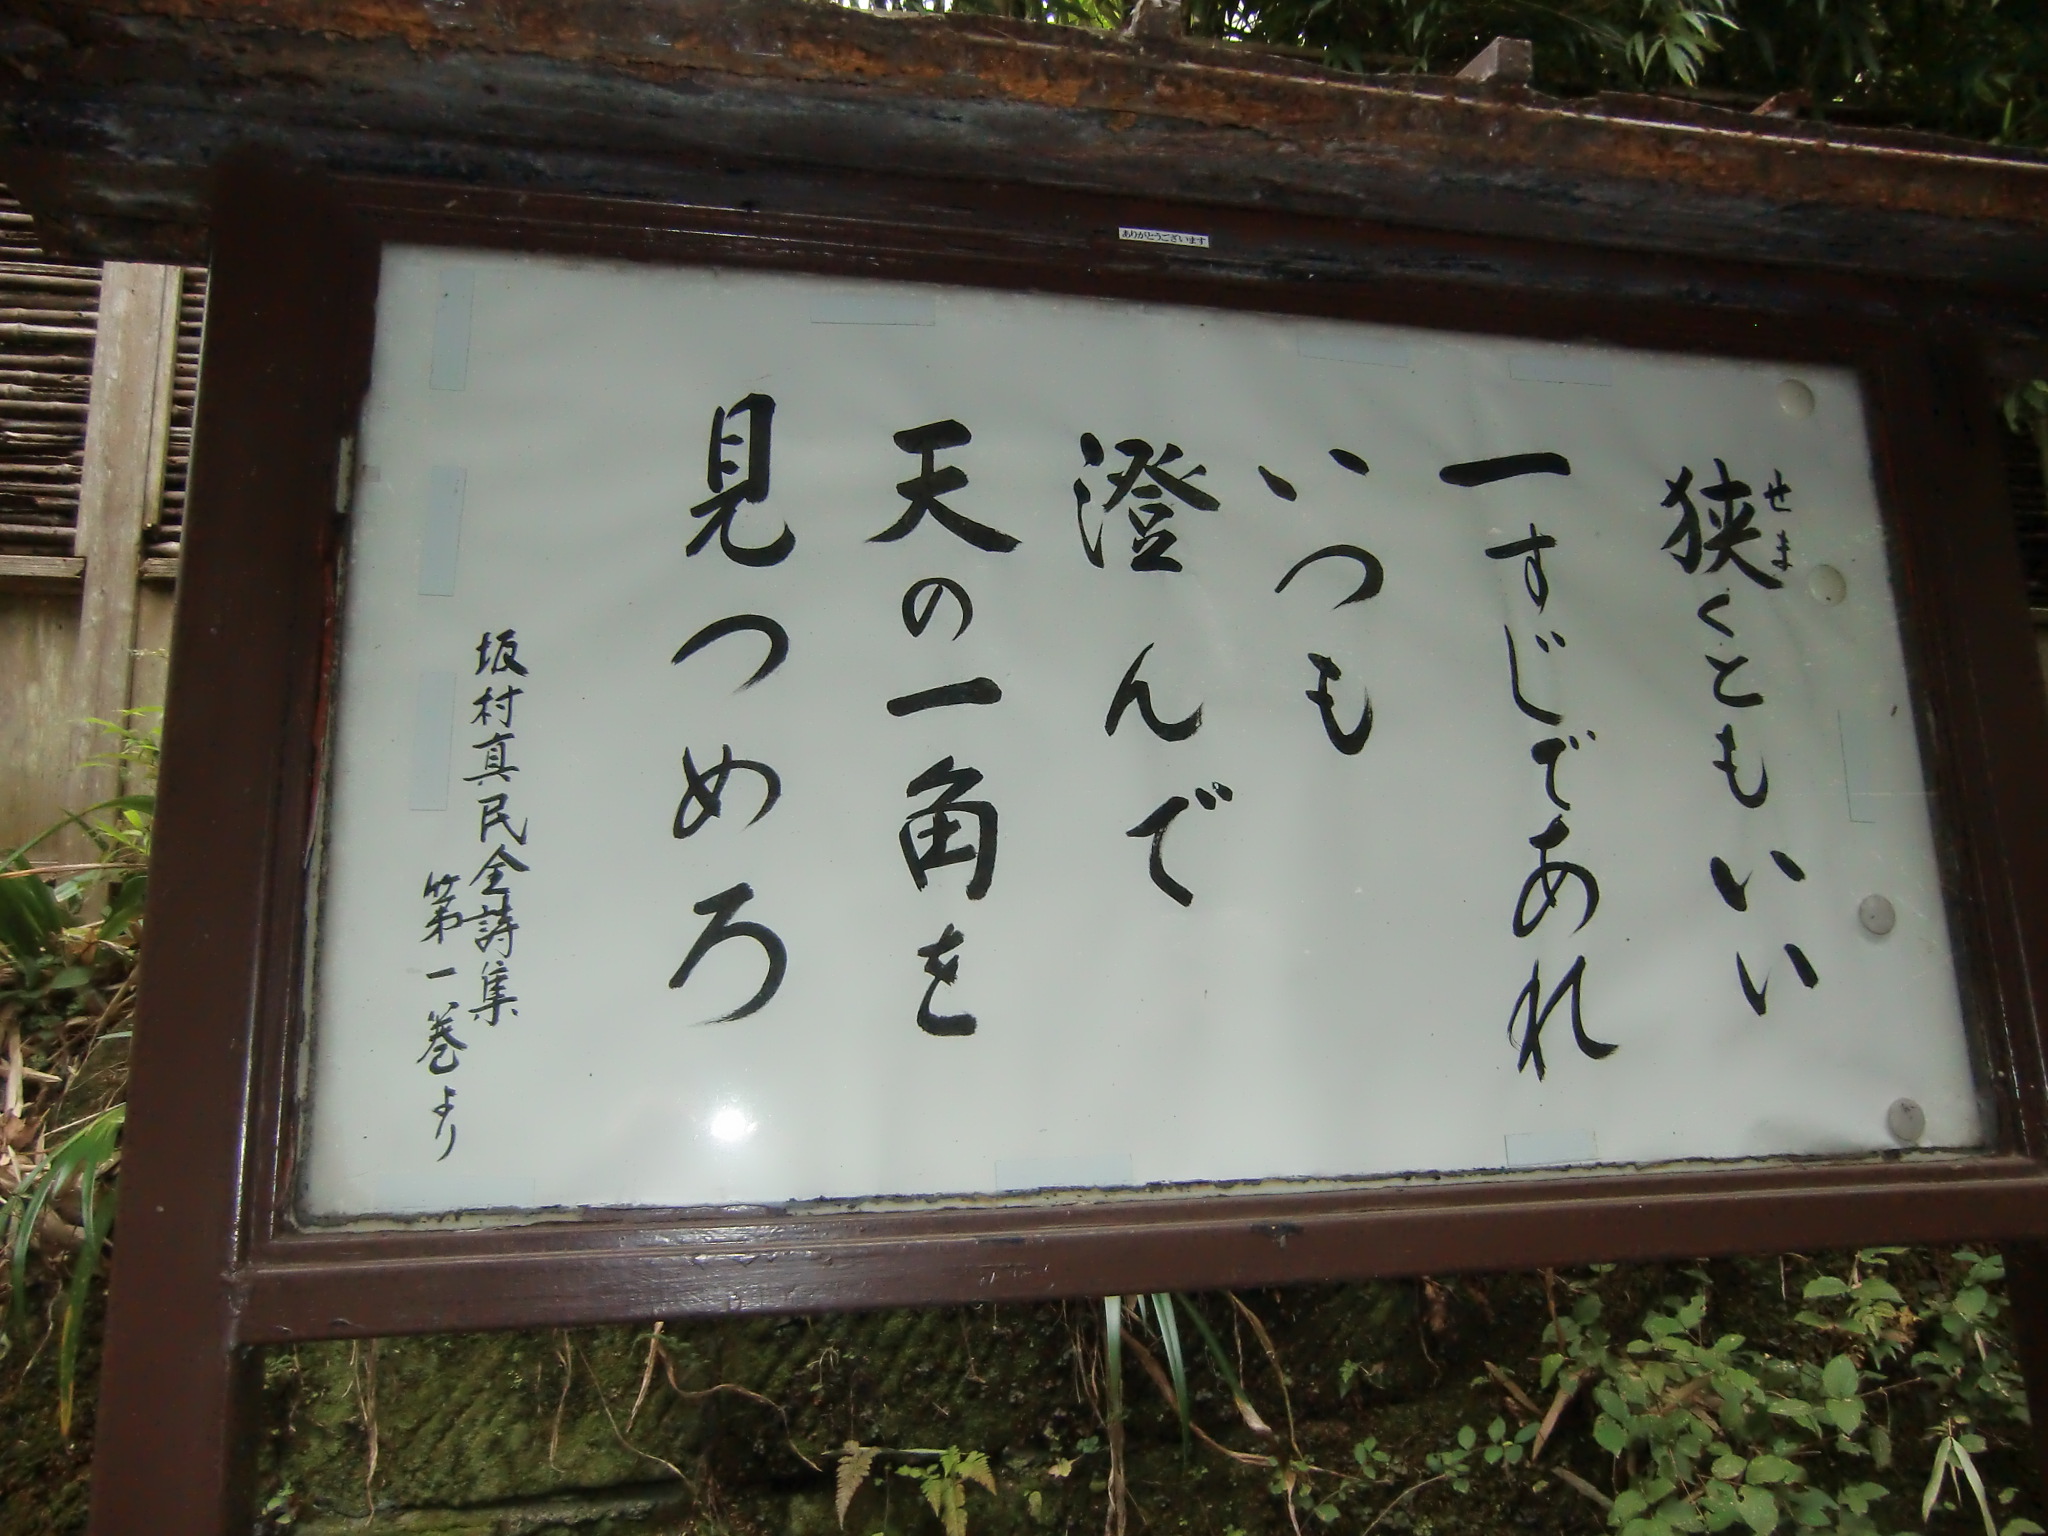 ありがとうございます
狭くともいい
せま
一すじであれ
いつも
澄んで
天の一角を
見つめろ
坂村真民全詩集
第一巻より